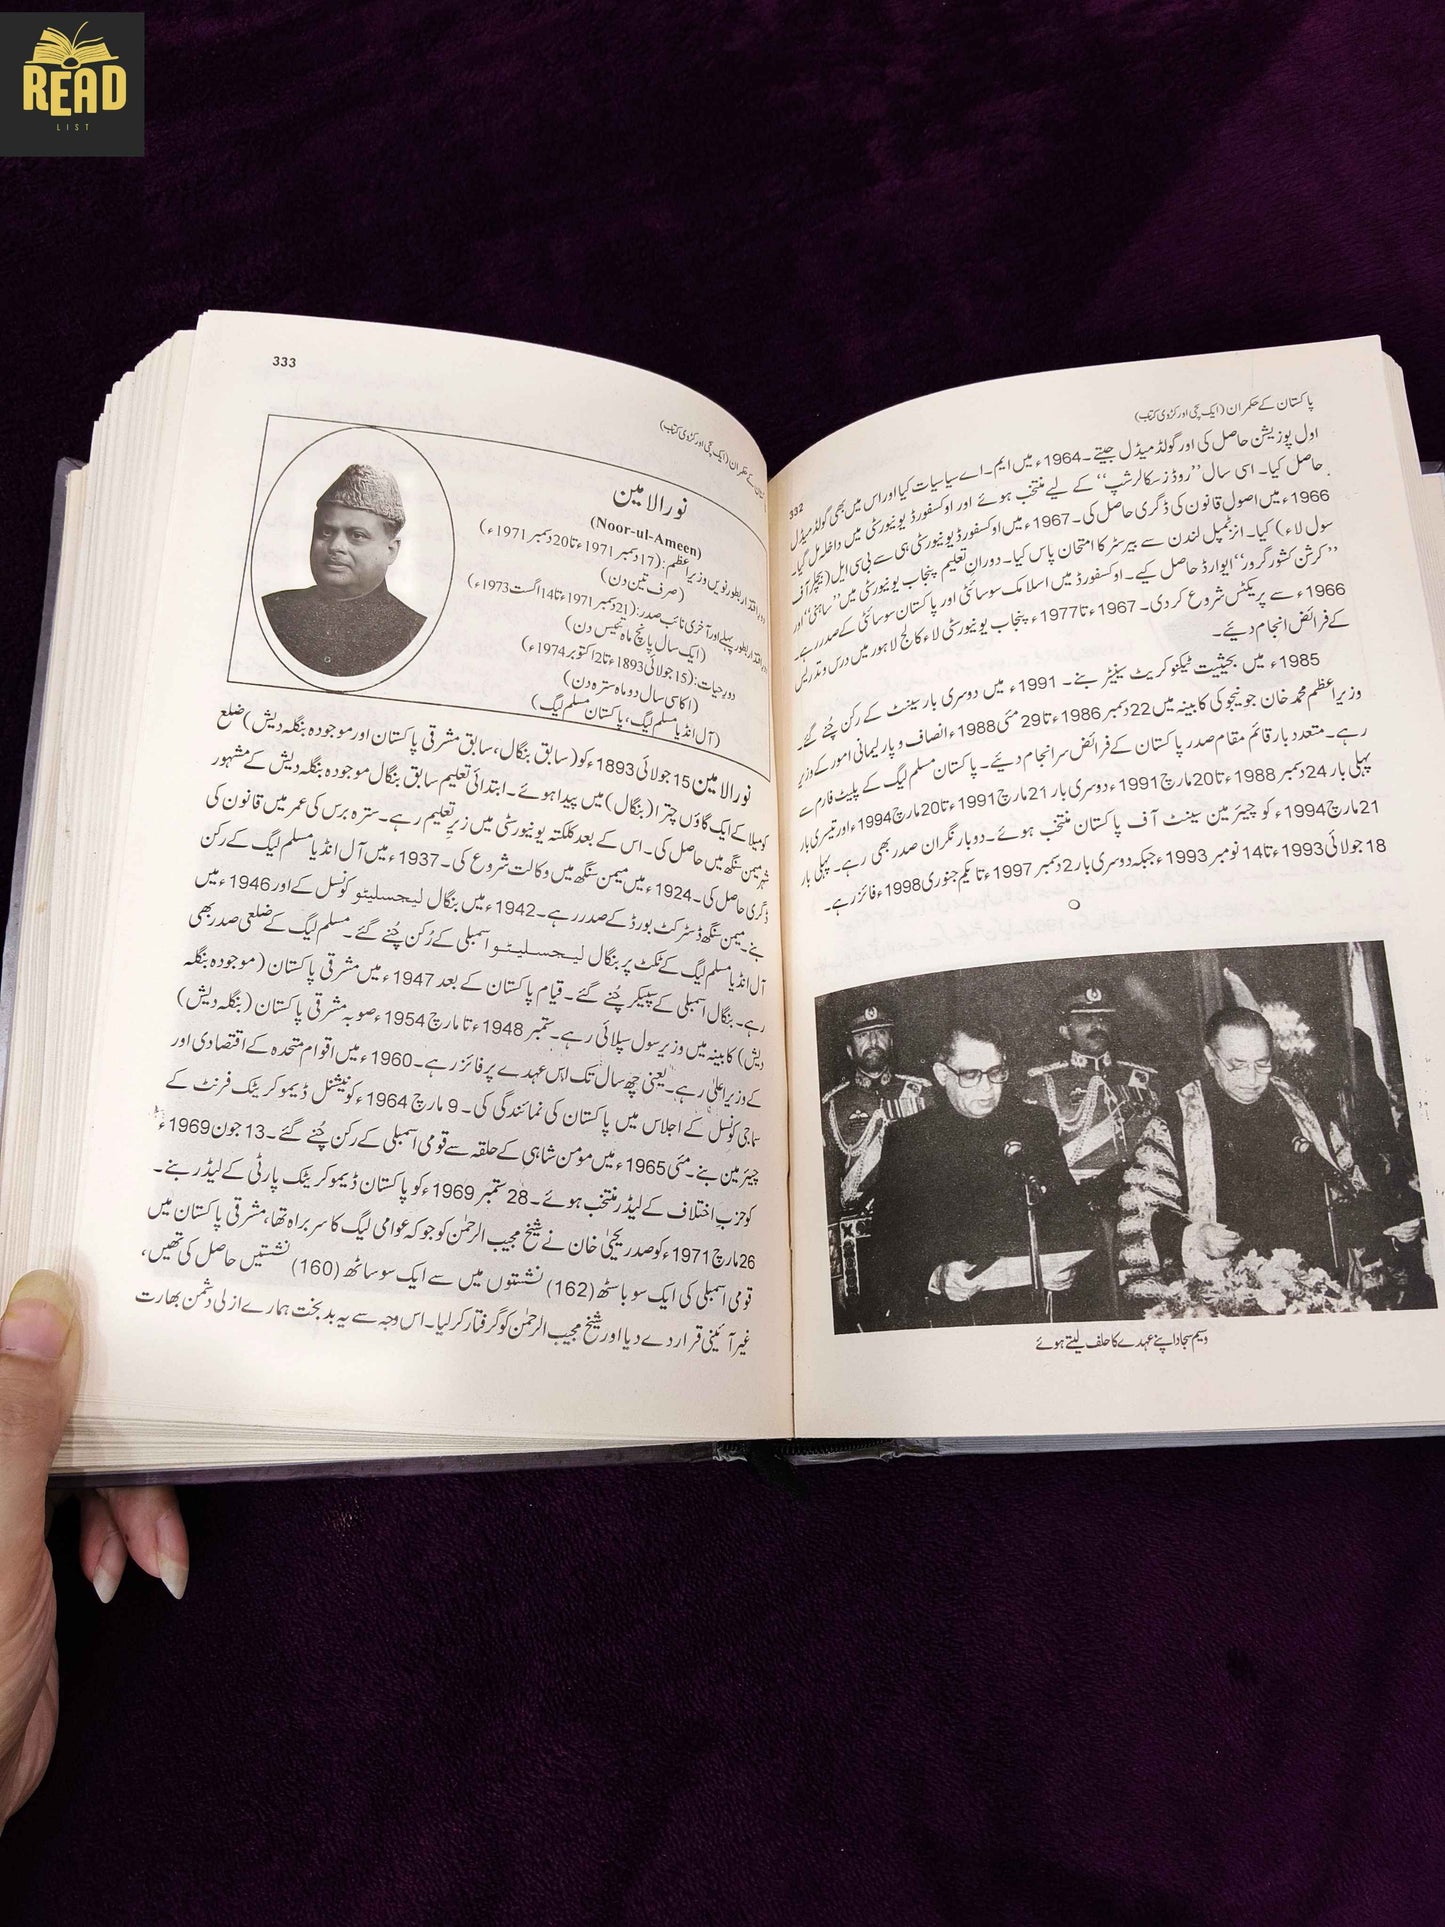 READ
LIST
پاکستان کے حکمران (ایک سچی اور کڑوی کتاب)
332
اول پوزیشن حاصل کی اور گولڈ میڈل جیتے۔ 1964ء میں ایم۔اے سیاسیات کیا اور اس میں بھی گولڈ میڈل
حاصل کیا۔ اسی سال ’’روڈز سکالرشپ‘‘ کے لیے منتخب ہوئے اور اوکسفورڈ یونیورسٹی میں داخلہ مل گیا۔
1966ء میں اصول قانون کی ڈگری حاصل کی۔ 1967ء میں اوکسفورڈ یونیورسٹی ہی سے بی سی ایل (بیچلر آف
سول لاء) کیا۔ انر ٹمپل لندن سے بیرسٹر کا امتحان پاس کیا۔ دوران تعلیم پنجاب یونیورسٹی میں ’’ساہنی‘‘ اور
’’کرشن کشور گرور‘‘ ایوارڈ حاصل کیے۔ اوکسفورڈ میں اسلامک سوسائٹی اور پاکستان سوسائٹی کے صدر رہے۔
1966ء سے پریکٹس شروع کر دی۔ 1967ء تا 1977ء پنجاب یونیورسٹی لاء کالج لاہور میں درس و تدریس
کے فرائض انجام دیئے۔
1985ء میں بحیثیت ٹیکنوکریٹ سینٹر بنے۔ 1991ء میں دوسری بار سینٹ کے رکن چُنے گئے۔
وزیراعظم محمد خان جونیجو کی کابینہ میں 22 دسمبر 1986ء تا 29 مئی 1988ء انصاف و پارلیمانی امور کے وزیر
رہے۔ متعدد بار قائم مقام صدر پاکستان کے فرائض سرانجام دیئے۔ پاکستان مسلم لیگ کے پلیٹ فارم سے
پہلی بار 24 دسمبر 1988ء تا 20 مارچ 1991ء دوسری بار 21 مارچ 1991ء تا 20 مارچ 1994ء اور تیسری بار
21 مارچ 1994ء کو چیئرمین سینٹ آف پاکستان منتخب ہوئے۔ دو بار نگران صدر بھی رہے۔ پہلی بار
18 جولائی 1993ء تا 14 نومبر 1993ء جبکہ دوسری بار 2 دسمبر 1997ء تا یکم جنوری 1998ء فائز رہے۔
وسیم سجاد اپنے عہدے کا حلف لیتے ہوئے
333
پاکستان کے حکمران (ایک سچی اور کڑوی کتاب)
نورالامین
(Noor-ul-Ameen)
دور اقتدار بطور نویں وزیراعظم: (17 دسمبر 1971ء تا 20 دسمبر 1971ء)
(صرف تین دن)
دور اقتدار بطور پہلے اور آخری نائب صدر: (21 دسمبر 1971ء تا 14 اگست 1973ء)
(ایک سال پانچ ماہ تئیس دن)
دور حیات: (15 جولائی 1893ء تا 2 اکتوبر 1974ء)
(اکاسی سال دو ماہ سترہ دن)
(آل انڈیا مسلم لیگ، پاکستان مسلم لیگ)
نورالامین 15 جولائی 1893ء کو (سابق بنگال، سابق مشرقی پاکستان اور موجودہ بنگلہ دیش) ضلع
کومیلا کے ایک گاؤں چترا (بنگال) میں پیدا ہوئے۔ ابتدائی تعلیم سابق بنگال موجودہ بنگلہ دیش کے مشہور
شہر میمن سنگھ میں حاصل کی۔ اس کے بعد کلکتہ یونیورسٹی میں زیرِ تعلیم رہے۔ سترہ برس کی عمر میں قانون کی
ڈگری حاصل کی۔ 1924ء میں میمن سنگھ میں وکالت شروع کی۔ 1937ء میں آل انڈیا مسلم لیگ کے رکن
بنے۔ میمن سنگھ ڈسٹرکٹ بورڈ کے صدر رہے۔ 1942ء میں بنگال لیجسلیٹو کونسل کے اور 1946ء میں
آل انڈیا مسلم لیگ کے ٹکٹ پر بنگال لیجسلیٹو اسمبلی کے رُکن چُنے گئے۔ مسلم لیگ کے ضلعی صدر بھی
رہے۔ بنگال اسمبلی کے سپیکر چُنے گئے۔ قیام پاکستان کے بعد 1947ء میں مشرقی پاکستان (موجودہ بنگلہ
دیش) کابینہ میں وزیر سول سپلائی رہے۔ ستمبر 1948ء تا مارچ 1954ء صوبہ مشرقی پاکستان (بنگلہ دیش)
کے وزیراعلیٰ رہے۔ یعنی چھ سال تک اس عہدے پر فائز رہے۔ 1960ء میں اقوام متحدہ کے اقتصادی اور
سماجی کونسل کے اجلاس میں پاکستان کی نمائندگی کی۔ 9 مارچ 1964ء کو نیشنل ڈیموکریٹک فرنٹ کے
چیئرمین بنے۔ مئی 1965ء میں مومن شاہی کے حلقہ سے قومی اسمبلی کے رکن چُنے گئے۔ 13 جون 1969ء
کو حزبِ اختلاف کے لیڈر منتخب ہوئے۔ 28 ستمبر 1969ء کو پاکستان ڈیموکریٹک پارٹی کے لیڈر بنے۔
26 مارچ 1971ء کو صدر یحییٰ خان نے شیخ مجیب الرحمٰن کو جو کہ عوامی لیگ کا سربراہ تھا، مشرقی پاکستان میں
قومی اسمبلی کی ایک سو باسٹھ (162) نشستوں میں سے ایک سو ساٹھ (160) نشستیں حاصل کی تھیں،
غیر آئینی قرار دے دیا اور شیخ مجیب الرحمٰن کو گرفتار کر لیا۔ اس وجہ سے یہ بدبخت ہمارے ازلی دشمن بھارت